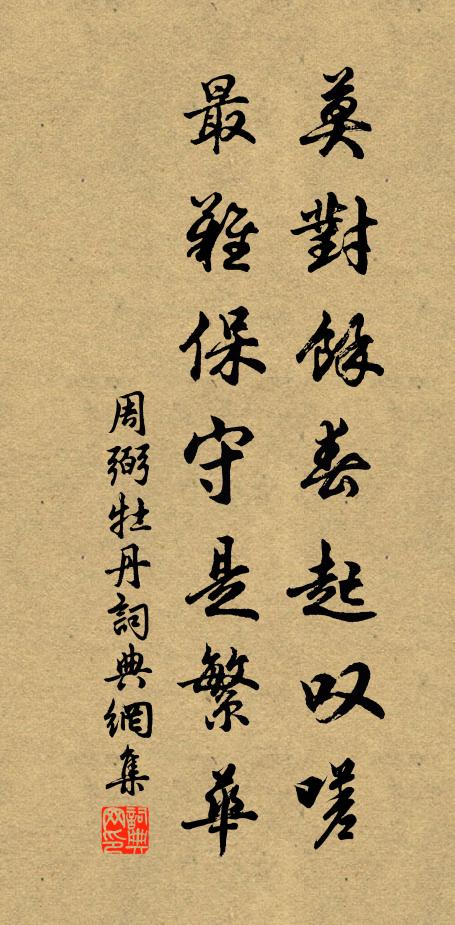 莫對餘春起叹嗟
最難保守是繁華
周弼牡丹詞典網集
詞典網印